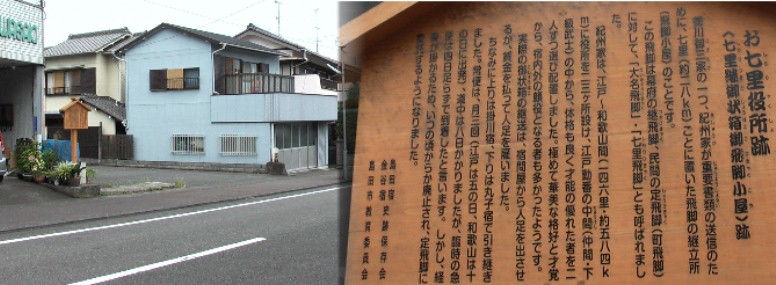 お七里役所跡
(七里継御状箱御飛脚小屋)跡
徳川御三家の一つ、紀州家が重要書類の送信のた
めに、七里(約二八km)ごとに置いた飛脚の継立所
(飛脚小屋)のことです。
この飛脚は幕府の継飛脚、民間の定飛脚(町飛脚)
に対して、「大名飛脚」・「七里飛脚」とも呼ばれまし
た。
紀州家は、江戸〜和歌山間(一四六里・約五八四k
m)に役所を二三ヶ所設け、江戸勤番の中間(仲間・下
級武士)の中から、体格も良く才能の優れた者を二
人ずつ選び配置しました。極めて華美な格好と才覚
から、宿内外の顔役となる者も多かったようです。
実際の御状箱の継送は、宿問屋から人足を出させ
るが、賃金を払って人足を雇いました。
ちなみに上りは掛川宿、下りは丸子宿で引き継ぎ
ました。常便は、月三回(江戸は五の日、和歌山は十
の日に出発)、道中は八日かかりましたが、臨時の急
便は四日足らずで到着したと言います。しかし、経
費が掛かるため、いつの頃からか廃止され、定飛脚に
委託するようになりました。
島田宿・金谷宿史跡保存会
島田市教育委員会